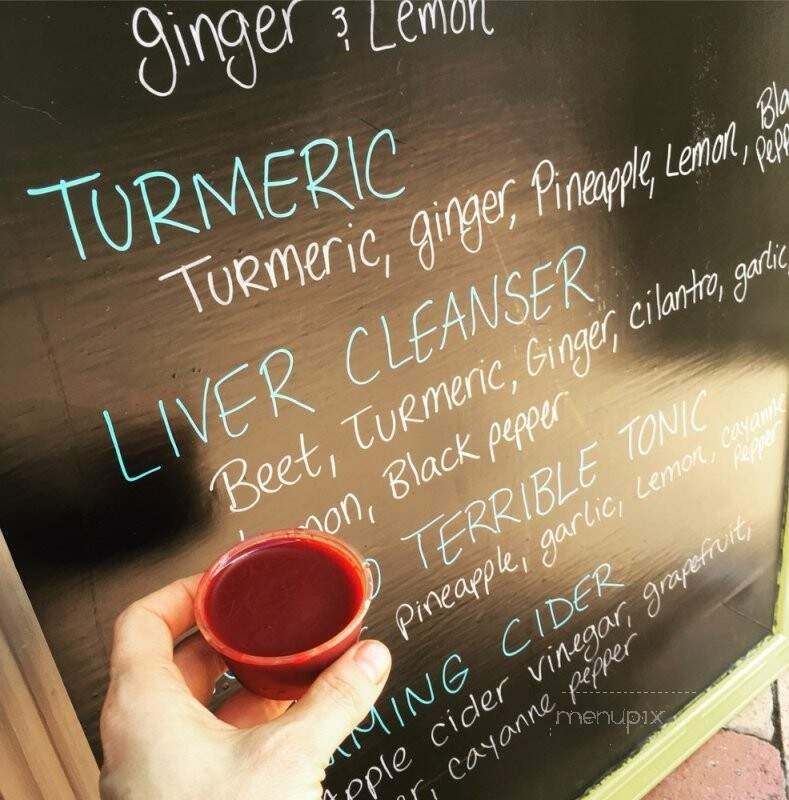 ginger & Lemon
TURMERIC
Turmeric, ginger, Pineapple, Lemon, Black
Pepper
LIVER CLEANSER
Beet, Turmeric, Ginger, cilantro, garlic,
Lemon, Black pepper
TERRIBLE TONIC
Pineapple, garlic, Lemon, cayanne
pepper
CIDER
Apple cider vinegar, grapefruit,
cayanne pepper
menupix